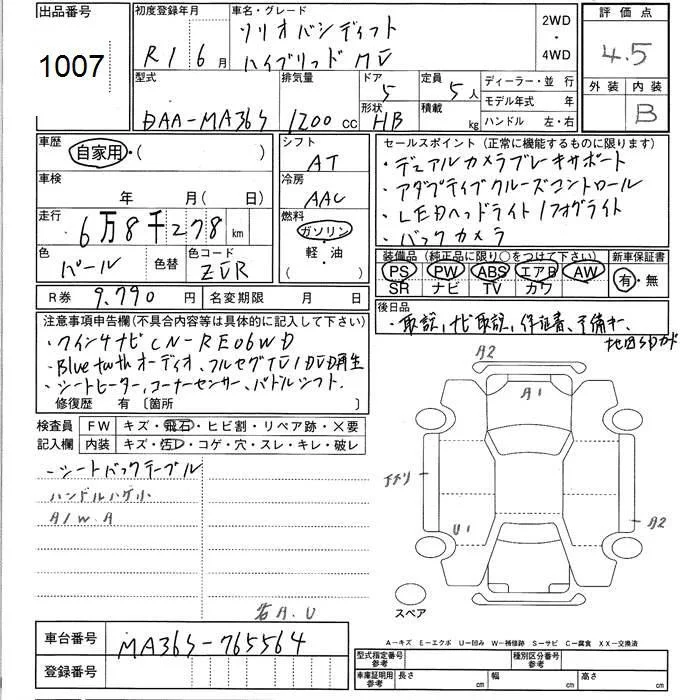 出品番号
1007
初度登録年月
R1 6月
車名・グレード
ソリオバンディット
ハイブリッドMV
2WD
・
4WD
評価点
4.5
外装 内装
B
型式
DAA-MA36S
排気量
1200 cc
ドア
5
形状
HB
定員
5人
積載
kg
ディーラー・並行
モデル年式 年
ハンドル 左・右
車歴
自家用・( )
シフト
AT
車検
年 月( 日)
冷房
AAC
走行
6万8千278 km
燃料
ガソリン
・
軽・油
( )
色
パール
色替
色コード
ZVR
R券 9,790 円
名変期限 月 日
セールスポイント (正常に機能するものに限ります)
・デュアルカメラブレーキサポート
・アダプティブクルーズコントロール
・LEDヘッドライト/フォグライト
・バックカメラ
装備品(純正品に限り○をつけて下さい)
PS PW ABS エアB AW
SR ナビ TV カワ
新車保証書
有・無
後日品
・取説、ナビ取説、保証書、予備キー、
地図SDカード
注意事項申告欄(不具合内容等は具体的に記入して下さい)
・9インチナビ CN-RE06WD
・Bluetoothオーディオ、フルセグTV/DVD再生
・シートヒーター、コーナーセンサー、パドルシフト
修復歴 有〔箇所 〕
検査員
記入欄
FW キズ・飛石・ヒビ割・リペア跡・×要
内装 キズ・汚D・コゲ・穴・スレ・キレ・破レ
・シートバックテーブル
ハンドルハゲ小
A/W A
右A.U
A2
A1
U1
A2
スペア
A−キズ E−エクボ U−凹み W−補修跡 S−サビ C−腐食 XX−交換済
車台番号
MA36S-765564
登録番号
型式指定番号
参考
種別区分番号
参考
車庫証明用
参考
長さ cm
幅 cm
高さ cm